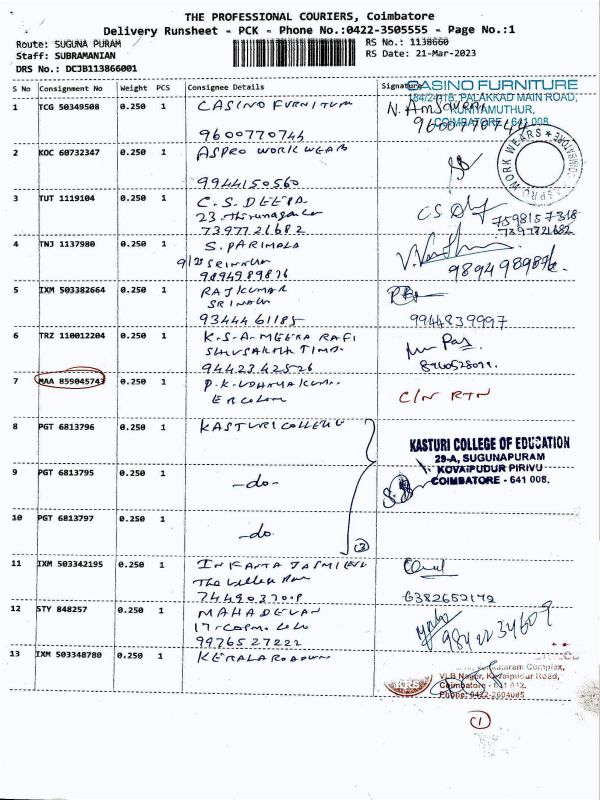 THE PROFESSIONAL COURIERS, Coimbatore
Delivery Runsheet - PCK - Phone No.:0422-3505555 - Page No.:1
Route: SUGUNA PURAM
RS No.: 1138660
Staff: SUBRAMANIAN
RS Date: 21-Mar-2023
DRS No.: DCJB113866001
S No Consignment No Weight PCS Consignee Details Signature
CASINO FURNITURE
184/241B, PALAKKAD MAIN ROAD,
KUNIYAMUTHUR,
COIMBATORE - 641 008.
1 TCG 50349508 0.250 1 CASINO FURNITURE
9600770744
9600770744
2 KOC 60732347 0.250 1 ASPRO WORK WEAR
9944150560
ASPRO WORK WEARS * COIMBATORE *
3 TUT 1119104 0.250 1 C.S. DEEPA
23.
7397721682
CS
7598157318
7397721682
4 TNJ 1137980 0.250 1 S. PARIMALA
9/25 SRINAGAR
9894989876
9894989876.
5 IXM 503382664 0.250 1 RAJKUMAR
SRINAGAR
9344461185
9944839997
6 TRZ 110012204 0.250 1 K.S.A. MEERA RAFI
9442342526
7 MAA 859045743 0.250 1 P.K. UDHYAKUM.
C/N RTN
8 PGT 6813796 0.250 1 KASTURI COLLEGE
KASTURI COLLEGE OF EDUCATION
29-A, SUGUNAPURAM
KOVAIPUDUR PIRIVU
COIMBATORE - 641 008.
9 PGT 6813795 0.250 1 -do-
10 PGT 6813797 0.250 1 -do-
3
11 IXM 503342195 0.250 1
The
6382652172
12 STY 848257 0.250 1 MAHADEVAN
9976527222
9842234609
13 IXM 503348780 0.250 1
Complex,
V.L.B Nagar, Kovaipudur Road,
Coimbatore - 641 042.
Phone: 0422-2604085
KRS
1